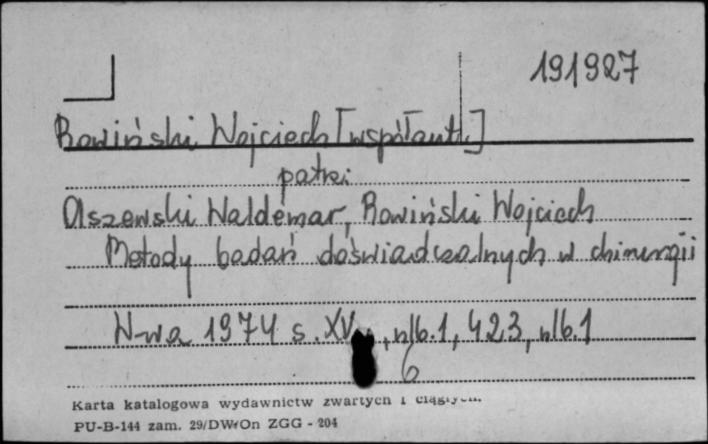 191927
Rowiński Wojciech [współaut.]
patrz
Olszewski Waldemar, Rowiński Wojciech
Metody badań doświadczalnych w chirurgii
W-wa 1974 s. XV, nlb. 1, 423, nlb. 1
6
Karta katalogowa wydawnictw zwartych i ciągłych.
PU-B-144 zam. 29/DWrOn ZGG - 204